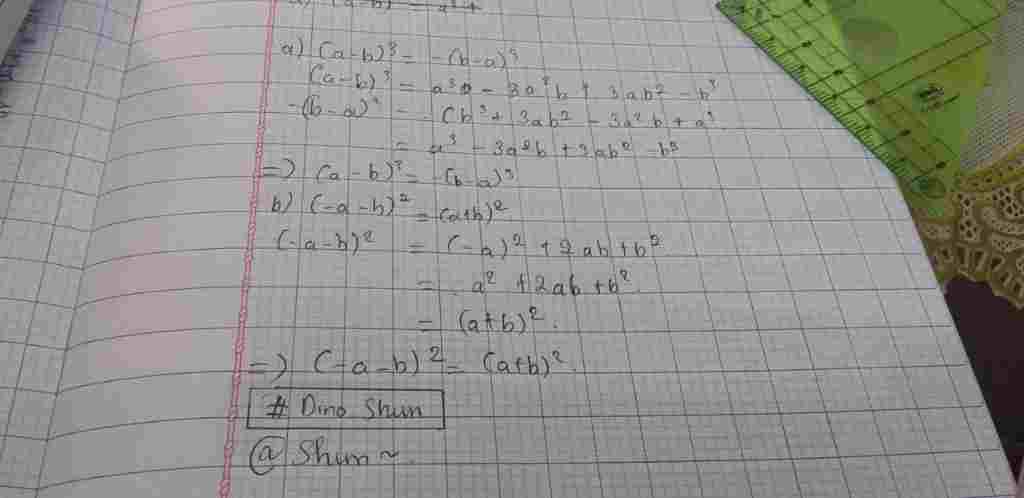 a) (a-b)³ = -(b-a)³
(a-b)³ = a³ - 3a²b + 3ab² - b³
-(b-a)³ = (b³ + 3ab² - 3a²b + a³
= a³ - 3a²b + 3ab² - b³
=) (a-b)³ = -(b-a)³
b) (-a-b)² = (a+b)²
(-a-b)² = (-a)² + 2ab + b²
= a² + 2ab + b²
= (a+b)².
=) (-a-b)² = (a+b)².
# Dino Shun
@ Shun~